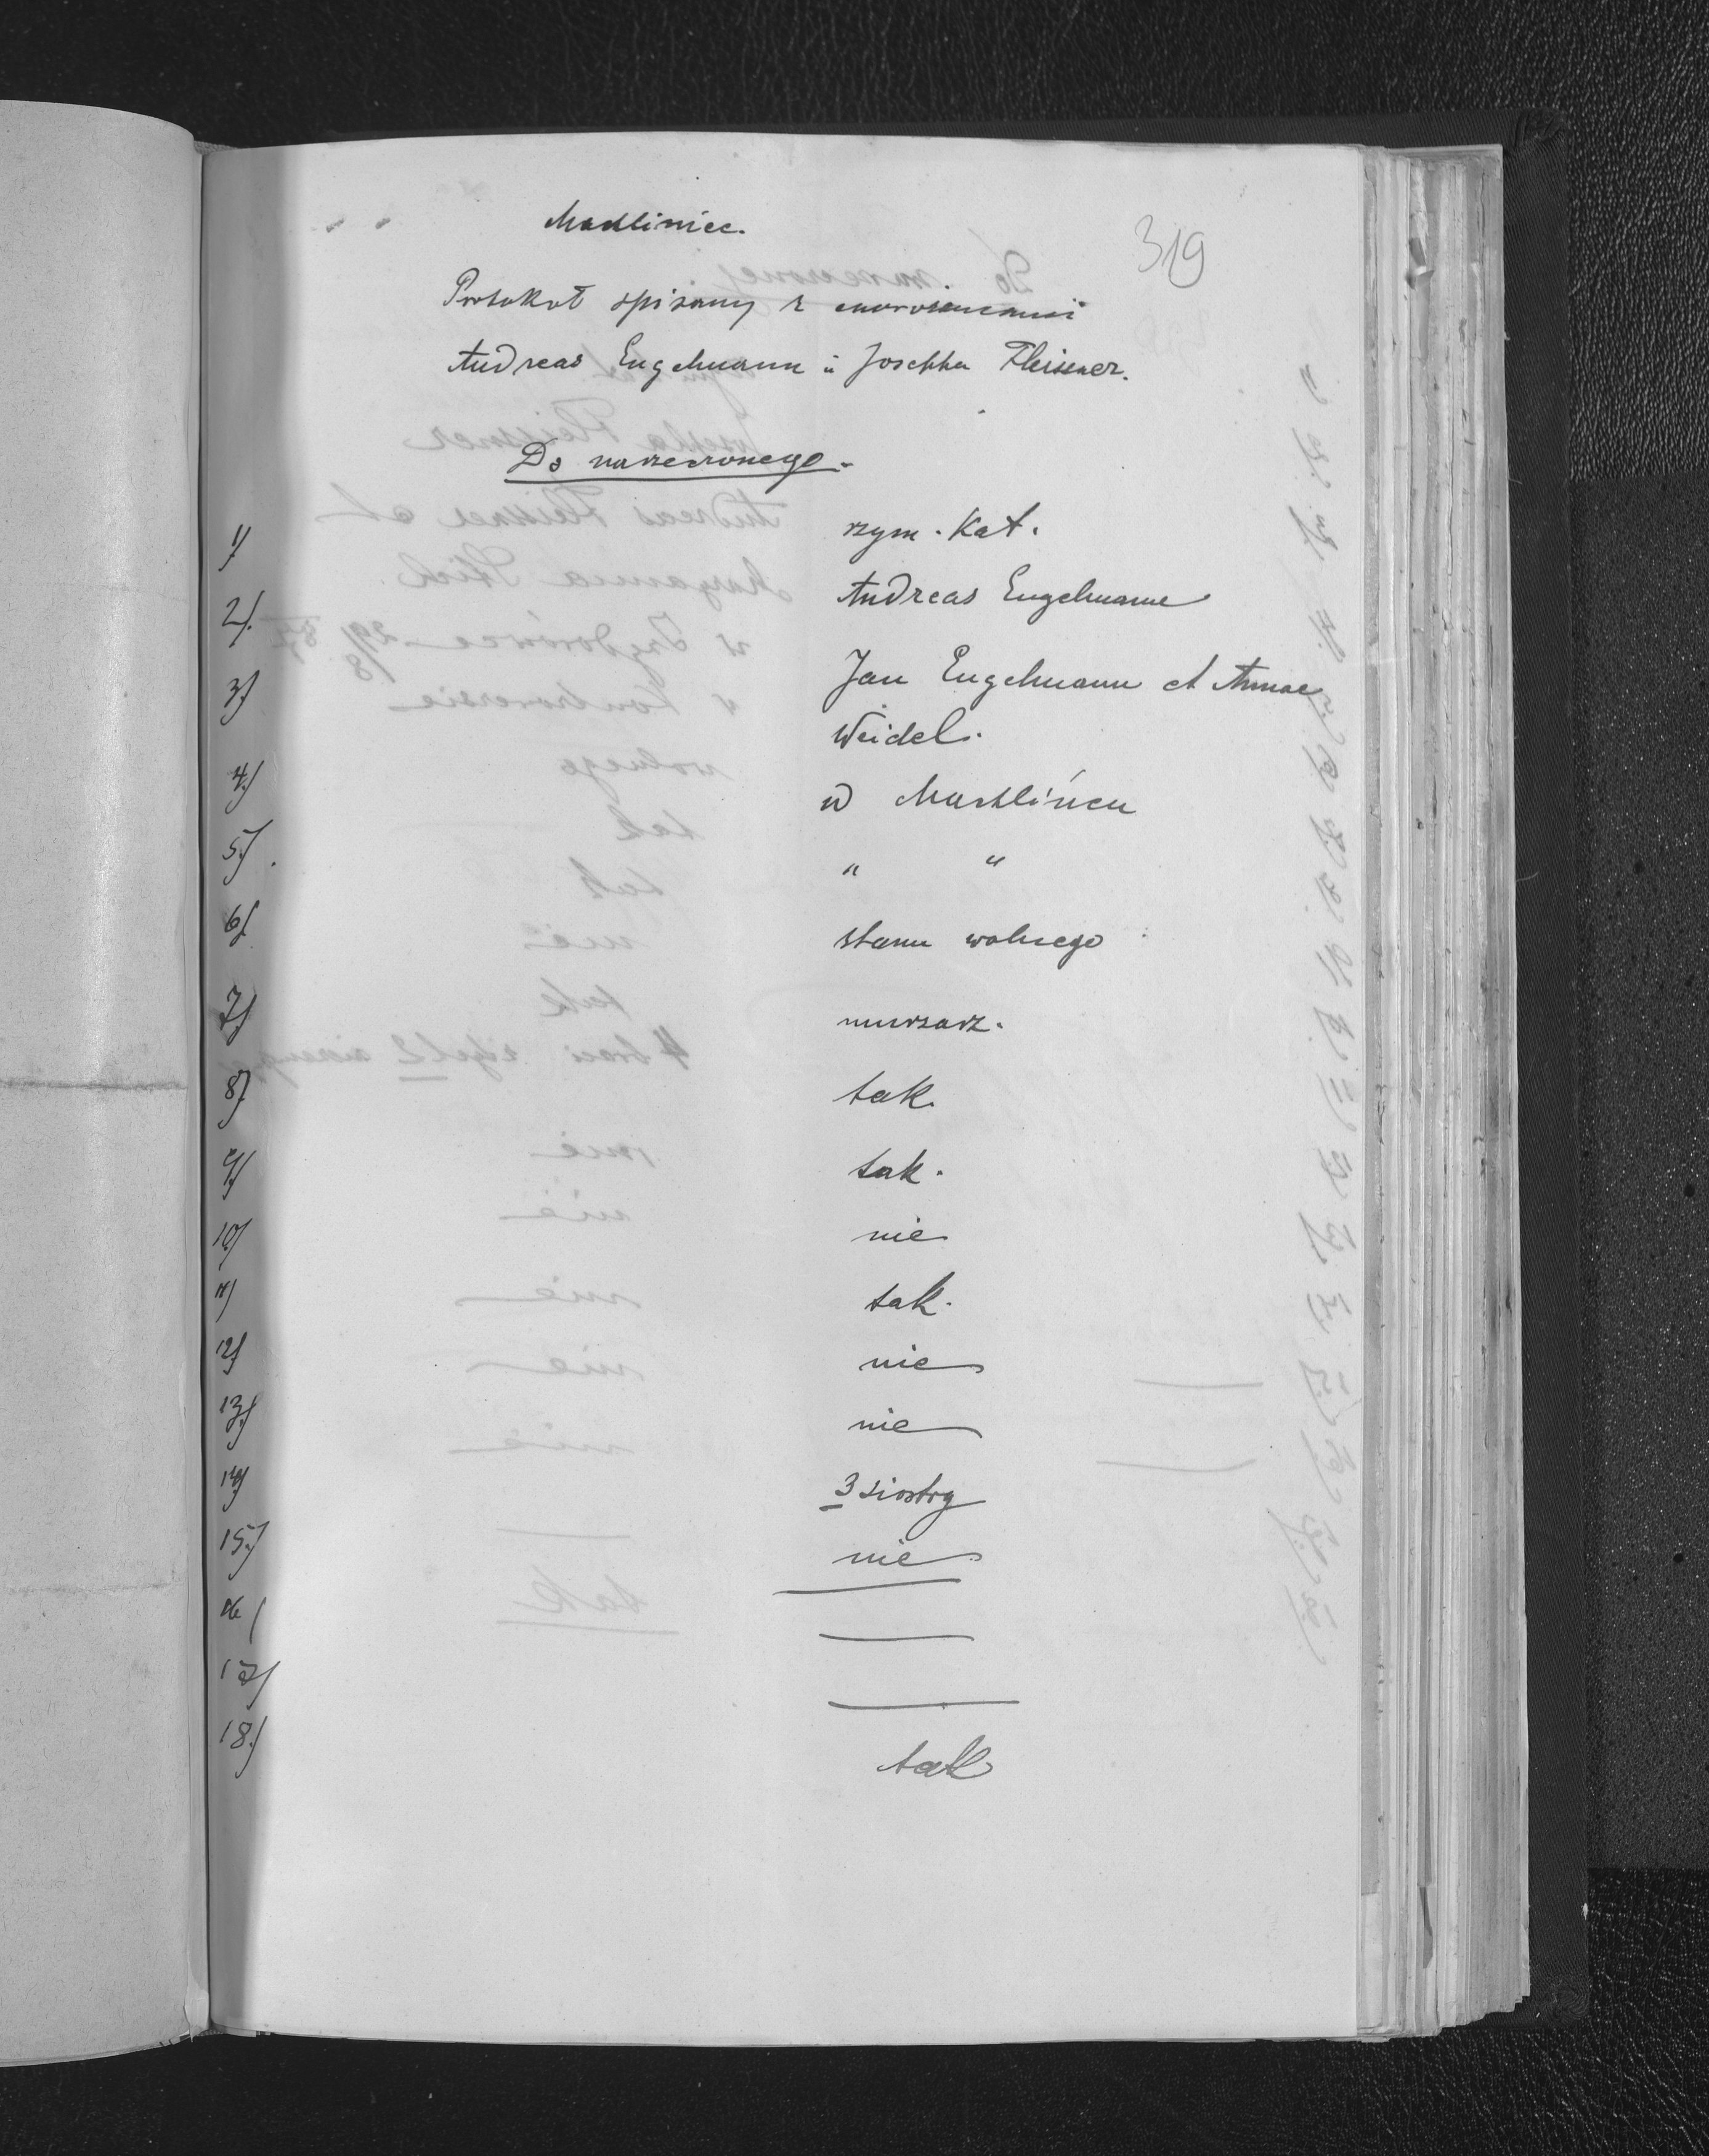 Machliniec.
319
Protokół spisany z narzeczonymi
Andreas Engelmann i Josepha Fleissner.
Do narzeczonego.
1) rzym. Kat.
2) Andreas Engelmann
3) Jan Engelmann et Annae
Weidel.
4) w Machlińcu
5) " "
6) stanu wolnego
7) murarz.
8) tak.
9) tak.
10) nie
11) tak.
12) nie
13) nie
14) 3 siostry
15) nie
16) —
17) —
18) tak